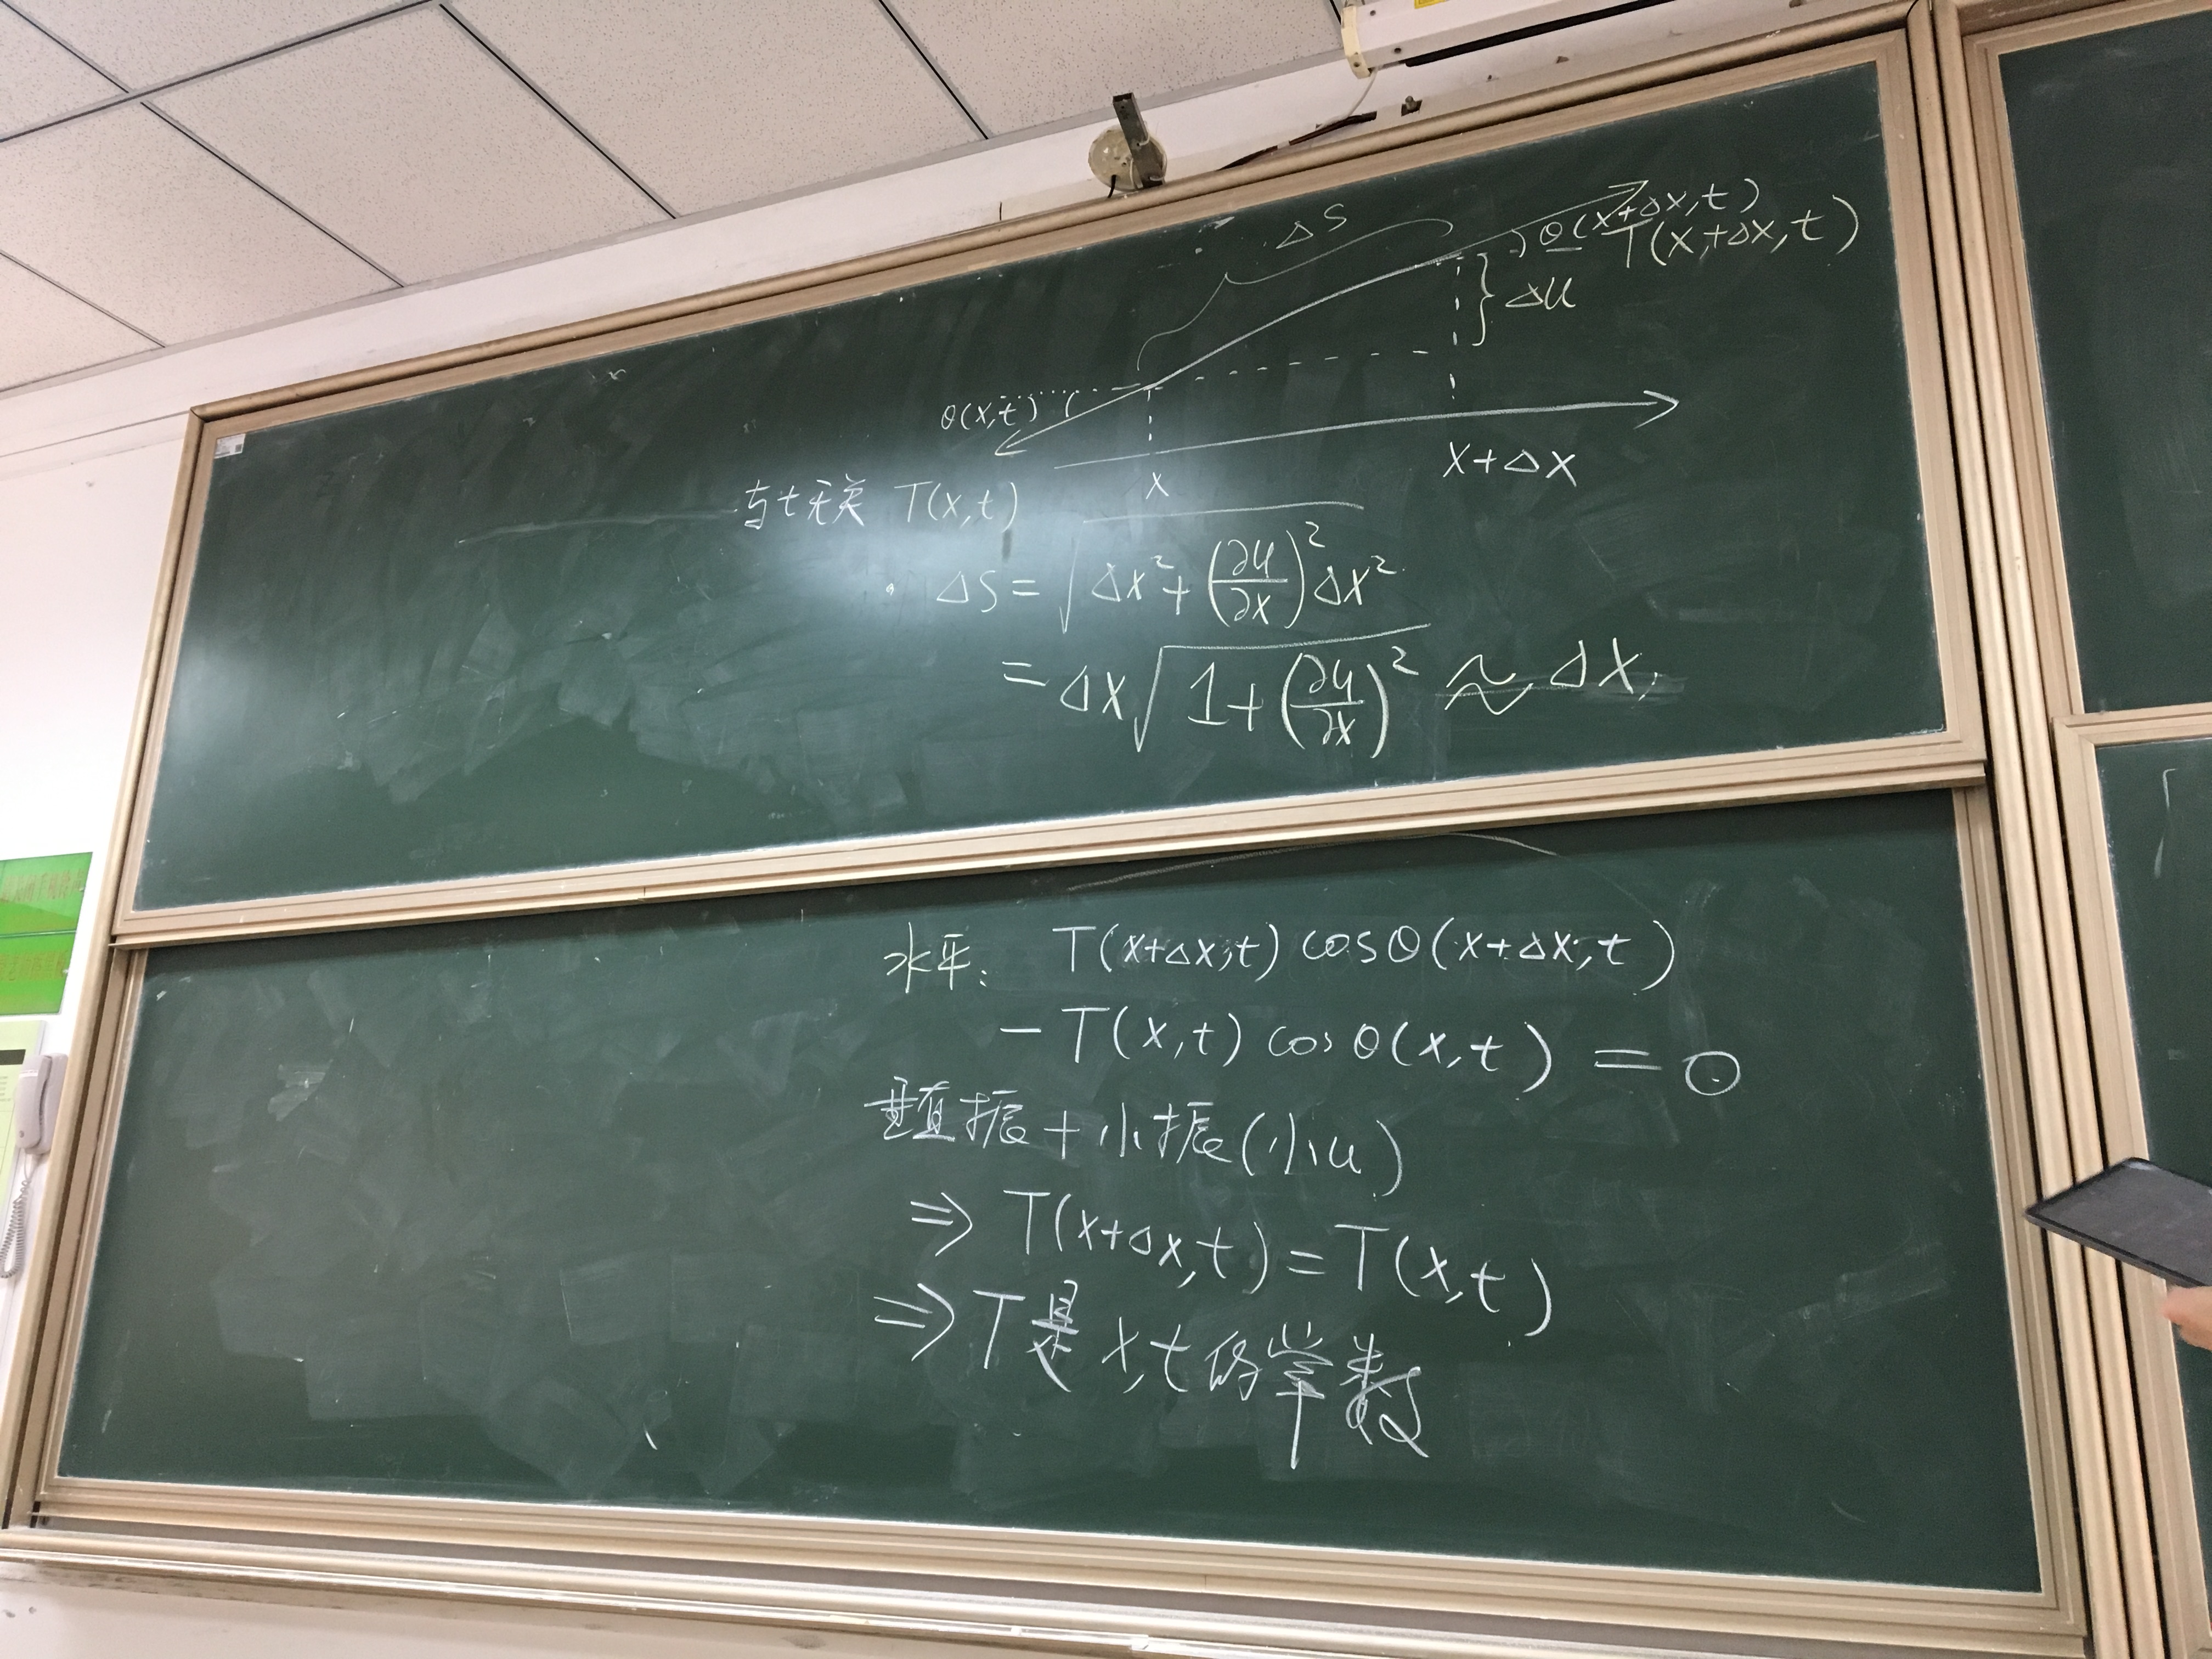 ΔS
θ(x+Δx,t)
T(x+Δx,t)
Δu
θ(x,t)
x
x+Δx
与t无关 T(x,t)
ΔS=√(Δx²+(∂u/∂x)²Δx²)
=Δx√(1+(∂u/∂x)²)≈Δx,
水平: T(x+Δx,t)cosθ(x+Δx,t)
-T(x,t)cosθ(x,t)=0
垂直振+小振(小u)
⇒T(x+Δx,t)=T(x,t)
⇒T是x,t的常数